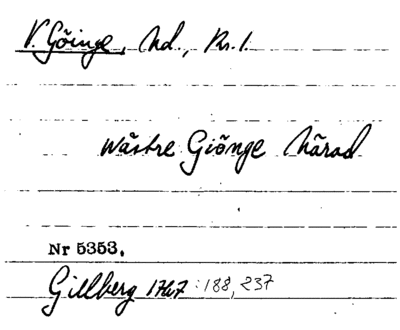 V. Göinge, hd., Kr. l.
wästre Giönge härad
Nr 5353.
Gillberg 1767 : 188, 237